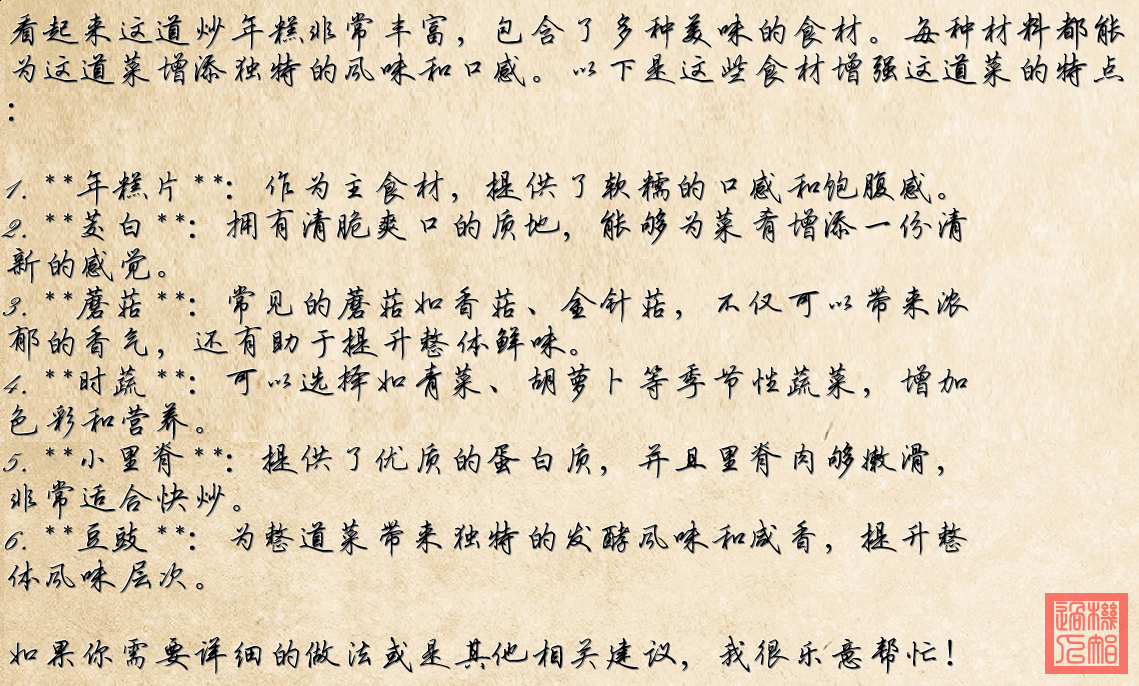 看起来这道炒年糕非常丰富，包含了多种美味的食材。每种材料都能
为这道菜增添独特的风味和口感。以下是这些食材增强这道菜的特点
：
1. **年糕片**：作为主食材，提供了软糯的口感和饱腹感。
2. **茭白**：拥有清脆爽口的质地，能够为菜肴增添一份清
新的感觉。
3. **蘑菇**：常见的蘑菇如香菇、金针菇，不仅可以带来浓
郁的香气，还有助于提升整体鲜味。
4. **时蔬**：可以选择如青菜、胡萝卜等季节性蔬菜，增加
色彩和营养。
5. **小里脊**：提供了优质的蛋白质，并且里脊肉够嫩滑，
非常适合快炒。
6. **豆豉**：为整道菜带来独特的发酵风味和咸香，提升整
体风味层次。
如果你需要详细的做法或是其他相关建议，我很乐意帮忙！